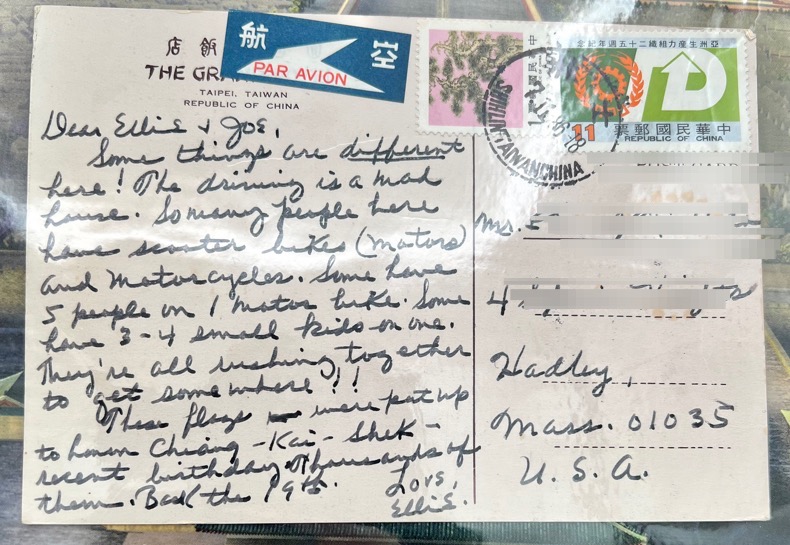 飯店
THE GRA
TAIPEI, TAIWAN
REPUBLIC OF CHINA
航空
PAR AVION
亞洲生產力組織二十五週年紀念
11
中華民國郵票
REPUBLIC OF CHINA
TAIWANCHINA
Dear Ellis & Joe,
Some things are different
here! The driving is a mad
house. So many people here
have scooter bikes (motors)
and motorcycles. Some have
5 people on 1 motor bike. Some
have 3-4 small kids on one.
They're all rushing together
to get somewhere!!
These flags were put up
to honor Chiang-Kai-Shek-
recent birthday. thousands of
them. Back the 19th.
Love,
Ellie.
Mr.
4
Hadley,
Mass. 01035
U.S.A.